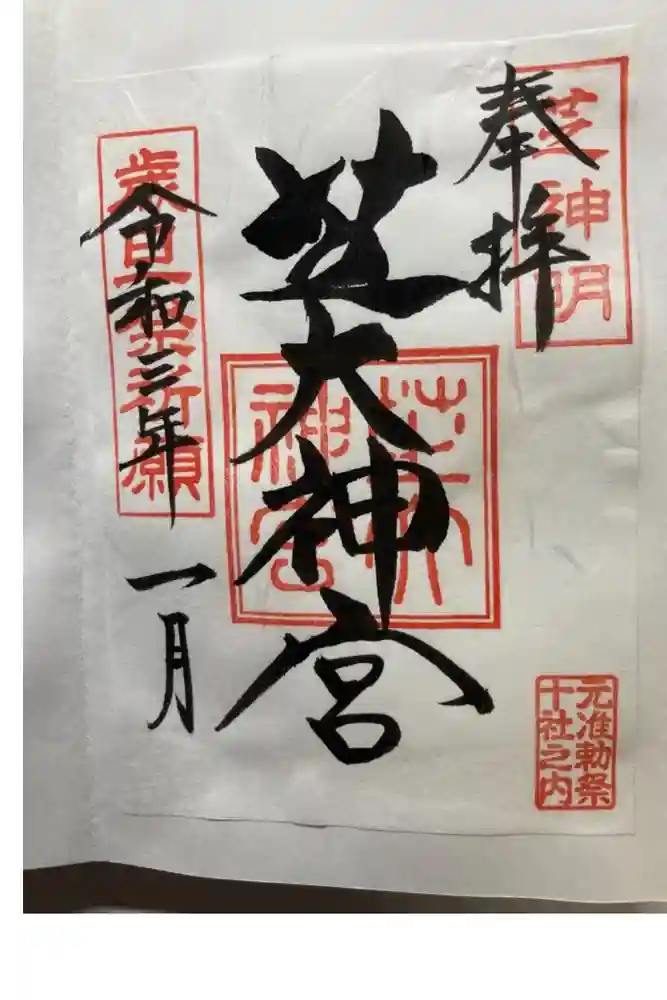 奉拝
芝神明
芝大神宮
芝大
神宮
令和三年
一月
歳旦祭祈願
元准勅祭
十社之内